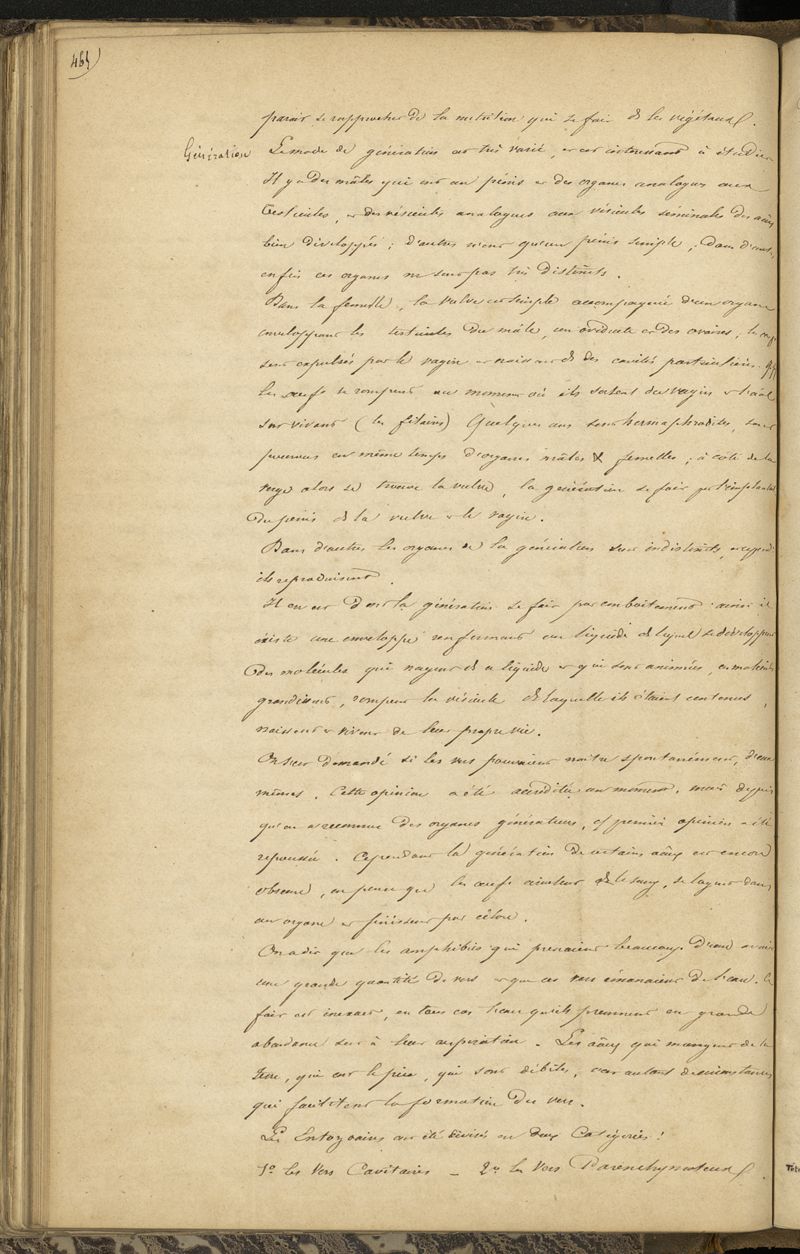 464
parait se rapprocher de la nutrition qui se fait ds les végétaux.
Génération
Le mode de génération est très varié, et est intéressant à étudier
Il y a des mâles qui ont un pénis et des organes analogues aux
testicules, et des vésicules analogues aux vésicules séminales des aux
bien développés ; d'autres n'ont qu'un pénis simple ; dans d'aut.
enfin ces organes ne sont pas très distincts.
Dans la femelle, la vulve est simple accompagnée d'un organe
enveloppant les testicules du mâle, un oviducte et des ovaires, les
sont expulsés par le vagin et naissent ds des cavités particulières.
Les œufs se rompent au moment où ils sortent du vagin et
sont vivants (les filaires) Quelques uns sont hermaphrodites, sont
pourvus en même temps d'organes mâles & femelles ; à côté de la
verge alors se trouve la vulve, la génération se fait par l'implantat
du pénis ds la vulve et le vagin.
Dans d'autres les organes de la génération sont indistincts, et
ils reproduisent.
Il en est dont la génération se fait par emboitement : ainsi il
existe une enveloppe renfermant un liquide ds lequel se développent
des molécules qui nagent ds ce liquide et qui sont animées, ces molécules
grandissent, rompent la vésicule ds laquelle ils étaient contenus,
naissent et vivent de leur propre vie.
On s'est demandé si les vers pouvaient naitre spontanément, d'eux
mêmes. Cette opinion a été accréditée un moment, mais depuis
qu'on a reconnu des organes générateurs, cette première opinion a été
repoussée. Cependant la génération de certains est encore
obscure, on pense que les œufs circulent ds le sang, se logent dans
un organe et finissent par éclore.
On a dit que les amphibies qui prenaient beaucoup d'eau avaient
une grande quantité de vers et que ces vers émanaient de l'eau. Le
fait est inexact, en tous cas l'eau qu'ils prennent en grande
abondance sert à leur respiration. Les qui mangent de la
terre, qui ont le pica, qui sont débiles, ont autant de circonstances
qui facilitent la formation des vers.
Les Entozoaires ont été divisés en deux Catégories :
1º les Vers Cavitaires — 2º les Vers Parenchymateux.